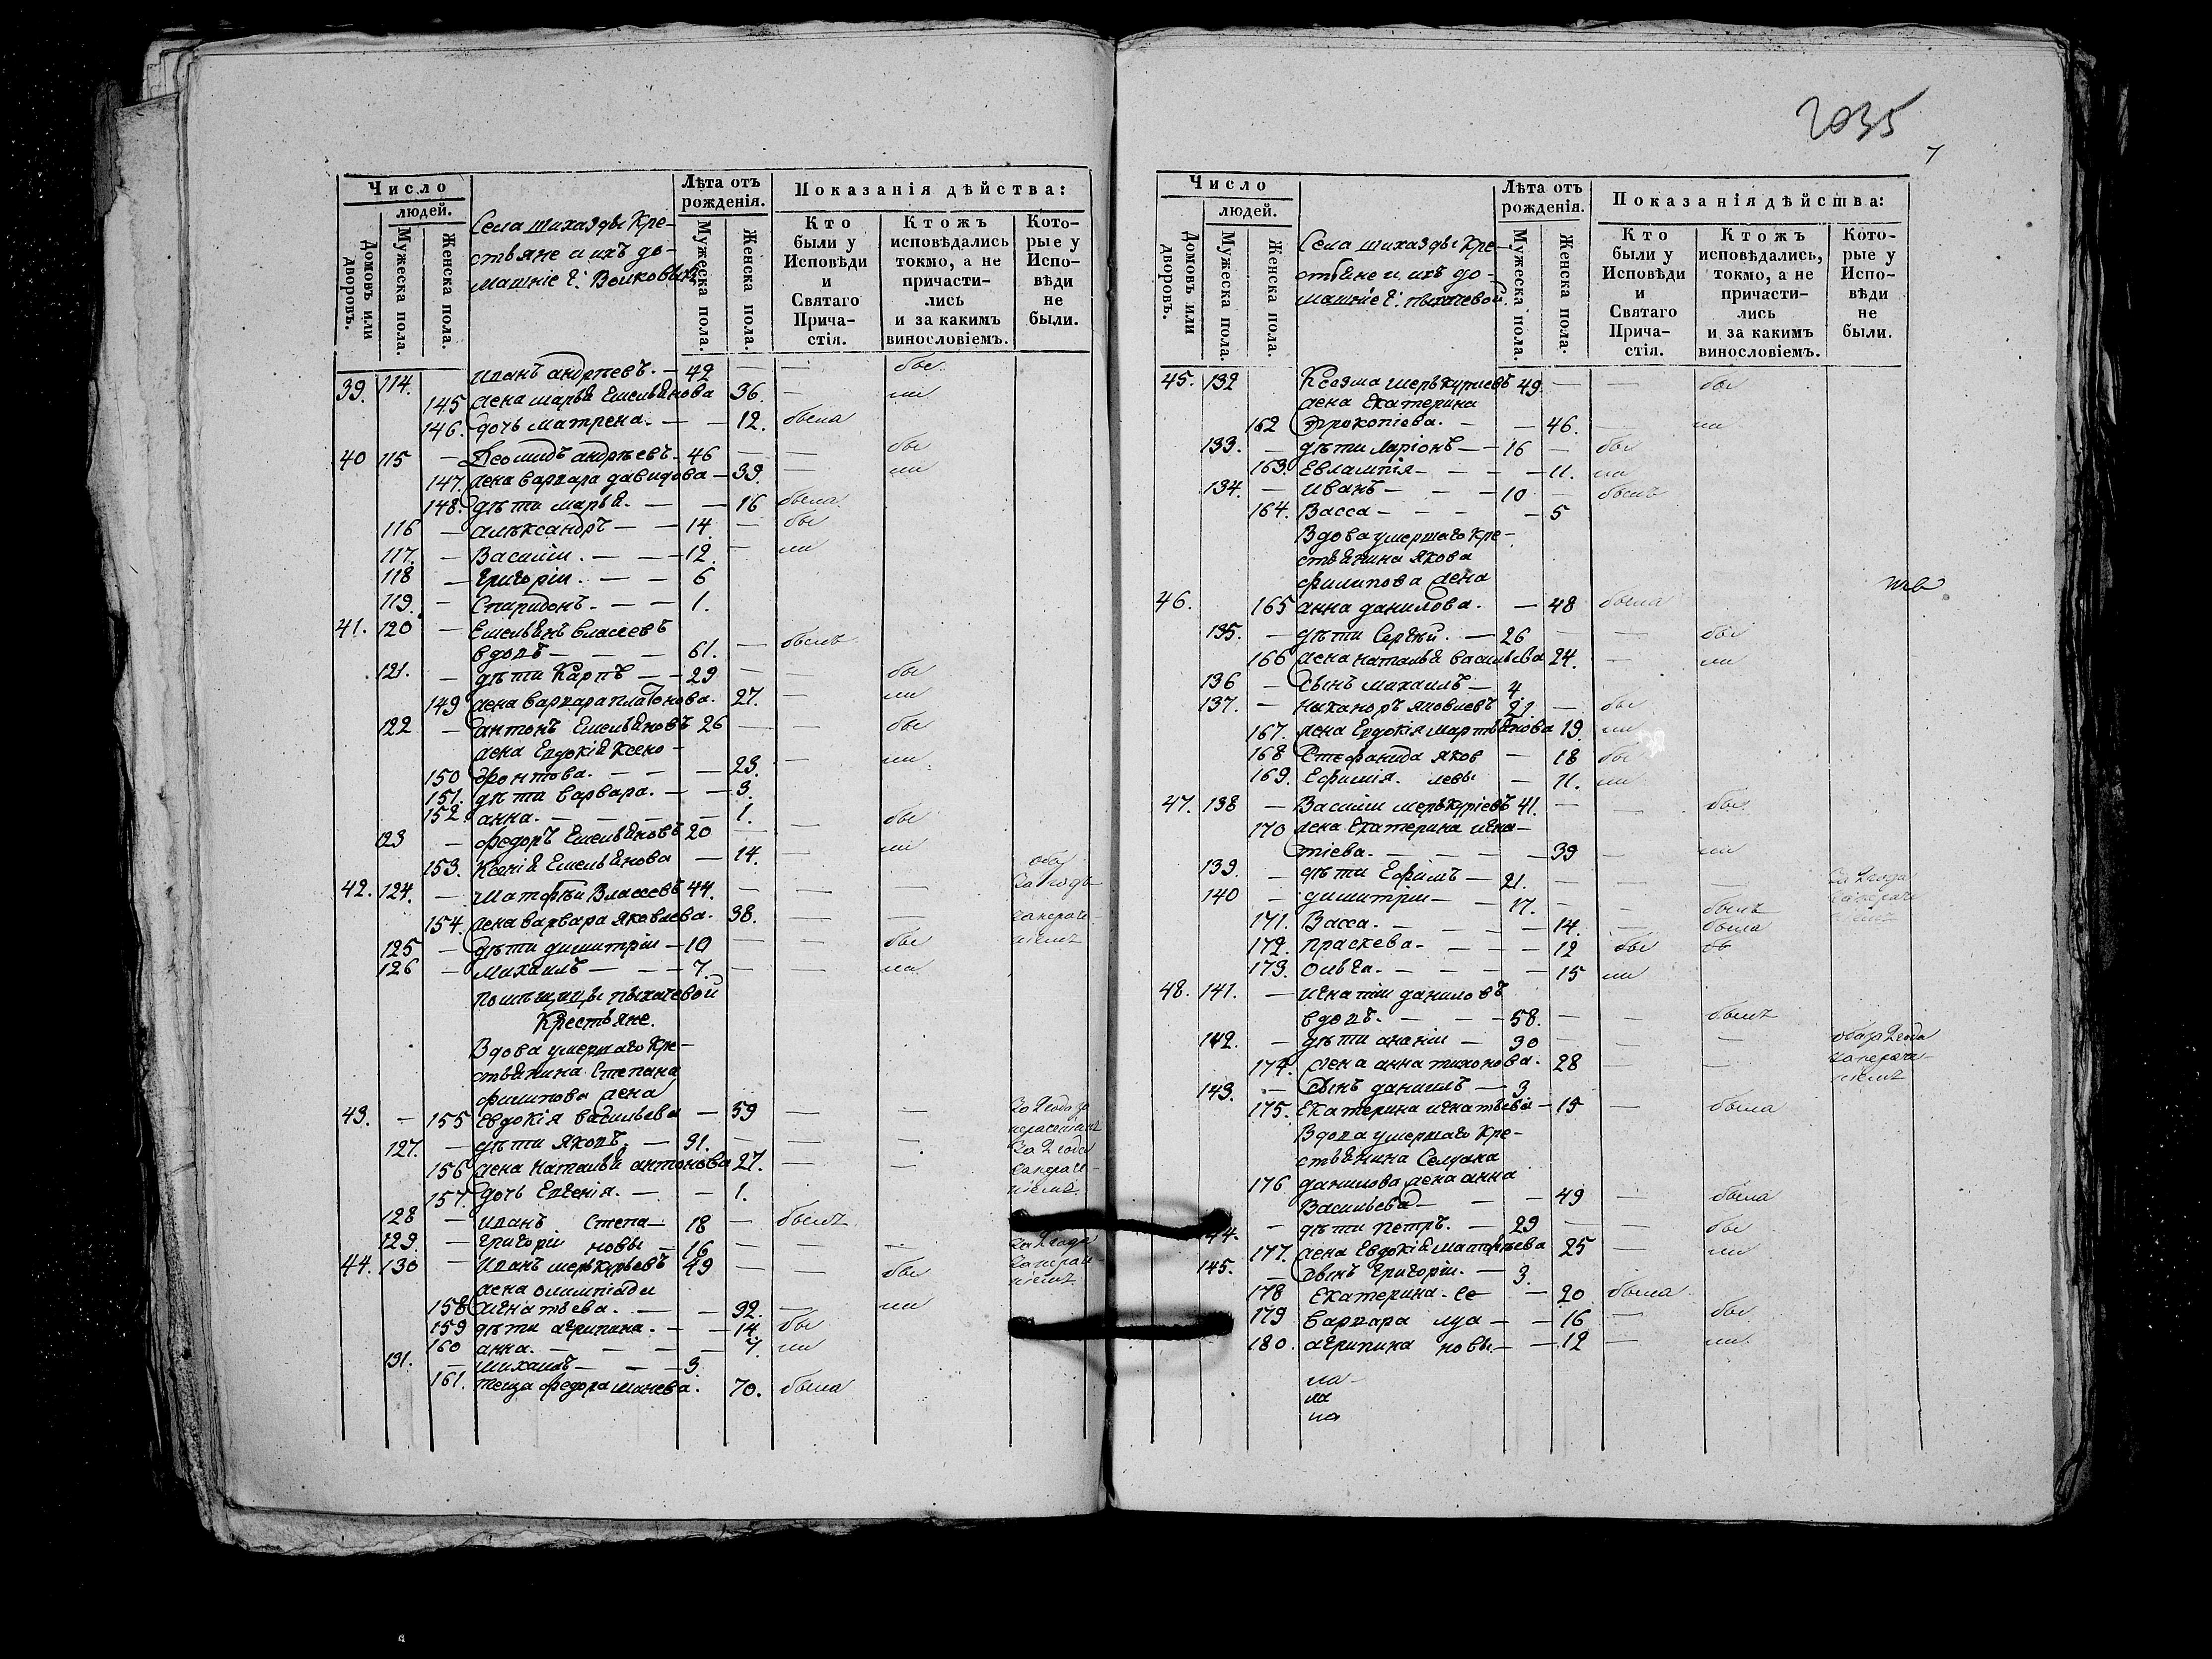 2035
7
Число
людей.
Домовъ или дворовъ.
Мужеска пола.
Женска пола.
Села Шихазды Кре-
стьяне и ихъ до-
машніе Г. Волковыхъ
Лѣта отъ
рожденія.
Мужеска пола.
Женска пола.
Показанія дѣйства:
Кто
были у
Исповѣди
и
Святаго
Прича-
стія.
Ктожъ
исповѣдались
токмо, а не
причасти-
лись
и за какимъ
винословіемъ.
Кото-
рые у
Испо-
вѣди
не
были.
39. 114. Иванъ Андрѣевъ. — 42 — — бы
145 жена Марья Емельянова 36. — ли
146. дочь Матрена. — — 12. была
40 115 — Леонидъ Андрѣевъ. 46 — — бы
147. жена Варвара Давидова — 39. — ли
148. дѣти Марья. — — 16 была
116 — Александръ — — 14. — бы
117. — Василіи. — — 12. — ли
118 — Григоріи. — — 6
119. — Спиридонъ. — — 1.
41. 120 — Емельянъ Власевъ
вдовъ — — — 61. — былъ
121. — дѣти Карпъ — — 29 — — бы
149 жена Варвара Платонова. 27. — ли
122 — Антонъ Емельяновъ 26 — — бы
жена Евдокія Ксено-
150 фонтова. — — — 23. — ли
151. дѣти Варвара. — — 3.
152. Анна. — — — 1.
123 — Федоръ Емельяновъ 20 — — бы
153. Ксенія Емельянова — 14. — ли
оба
42. 124. — Матфѣи Власевъ 44. — — — За 1 годъ
154. жена Варвара Яковлева. 38. — —
125 — дѣти Димитріи — 10 — — бы
126 — Михаилъ — — — 7. — — ли
Помѣщицы Пыхачевой
Крестьяне.
Вдова умершаго Кре-
стьянина Степана
Филипова жена
43. — 155 Евдокія Васильева — 59 — — За 2 года
127. — дѣти Яковъ. — 31. — — — За 2 года
156 жена Наталья Антонова 27. — —
157 дочь Евгенія. — — 1.
128 — Иванъ Степа- 18 — былъ
129. — Григоріи новы — 16 — — — За 2 года
44. 130 — Иванъ Меркурьевъ 49 — — бы
жена Олимпіади
158 Игнатьева. — — 32. — ли
159 дѣти Агрипина. — — 14. бы
160 Анна. — — — — 7. ли
131. — Михаилъ — — — 3.
161. теща Федора Минева. 70. была
Число
людей.
Домовъ или дворовъ.
Мужеска пола.
Женска пола.
Села Шихазды Кре-
стьяне и ихъ до-
машніе Г. Пыхачевой.
Лѣта отъ
рожденія.
Мужеска пола.
Женска пола.
Показанія дѣйства:
Кто
были у
Исповѣди
и
Святаго
Прича-
стія.
Ктожъ
исповѣдались,
токмо, а не
причасти-
лись
и за какимъ
винословіемъ.
Кото-
рые у
Испо-
вѣди
не
были.
45. 132 Козма Меркуриевъ 49. — — бы
жена Екатерина
162 Прокопіева. — — 46. — ли
133. — дѣти Ларіонъ — 16 — бы
163. Евлампія — — — 11. ли
134. — Иванъ — — — 10 — былъ
164. Васса — — — — 5
Вдова умершаго Кре-
стьянина Якова
Филипова жена
46. 165 Анна Данилова. — 48 была
135. — дѣти Сергѣи. — 26 — — бы
166 жена Наталья Васильева 24. — ли
136 — Сынъ Михаилъ — 4
137. — Никаноръ Яковлевъ 21 — бы
167. жена Евдокія Мартьянова 19. ли
168 Стефанида Яков — 18 бы
169. Ефимія. левы — 11. ли
47. 138 — Василіи Меркуріевъ 41. — — бы
170 жена Екатерина Игна-
тіева. — — — — 39 — ли
139. — дѣти Ефимъ — 21. — — — За 2 года
140 — Димитріи — — 17. — — былъ
171. Васса. — — — — 14. — была
172. Праскева. — — — — 12 бы
173. Ольга. — — — — 15 ли
48. 141. — Игнатіи Даниловъ
вдовъ. — — — 58. — — былъ
142. — дѣти Ананіи — 30 — — — оба за 2 года
174. жена Анна Тихонова. 28 — —
143. — Сынъ Даниилъ — 3
175. Екатерина Игнатьева — 15 — была
Вдова умершаго Кре-
стьянина
176 Данилова жена Анна
Васильева — — — 49 — была
144. — дѣти Петръ. — 29 — — бы
177. жена Евдокія Матфѣева 25 — ли
145. — Сынъ Григоріи. — 3.
178 Екатерина. Се — 20 была
179 Варвара — — 16 — бы
180. Агрипина новы. — — 12 — ли